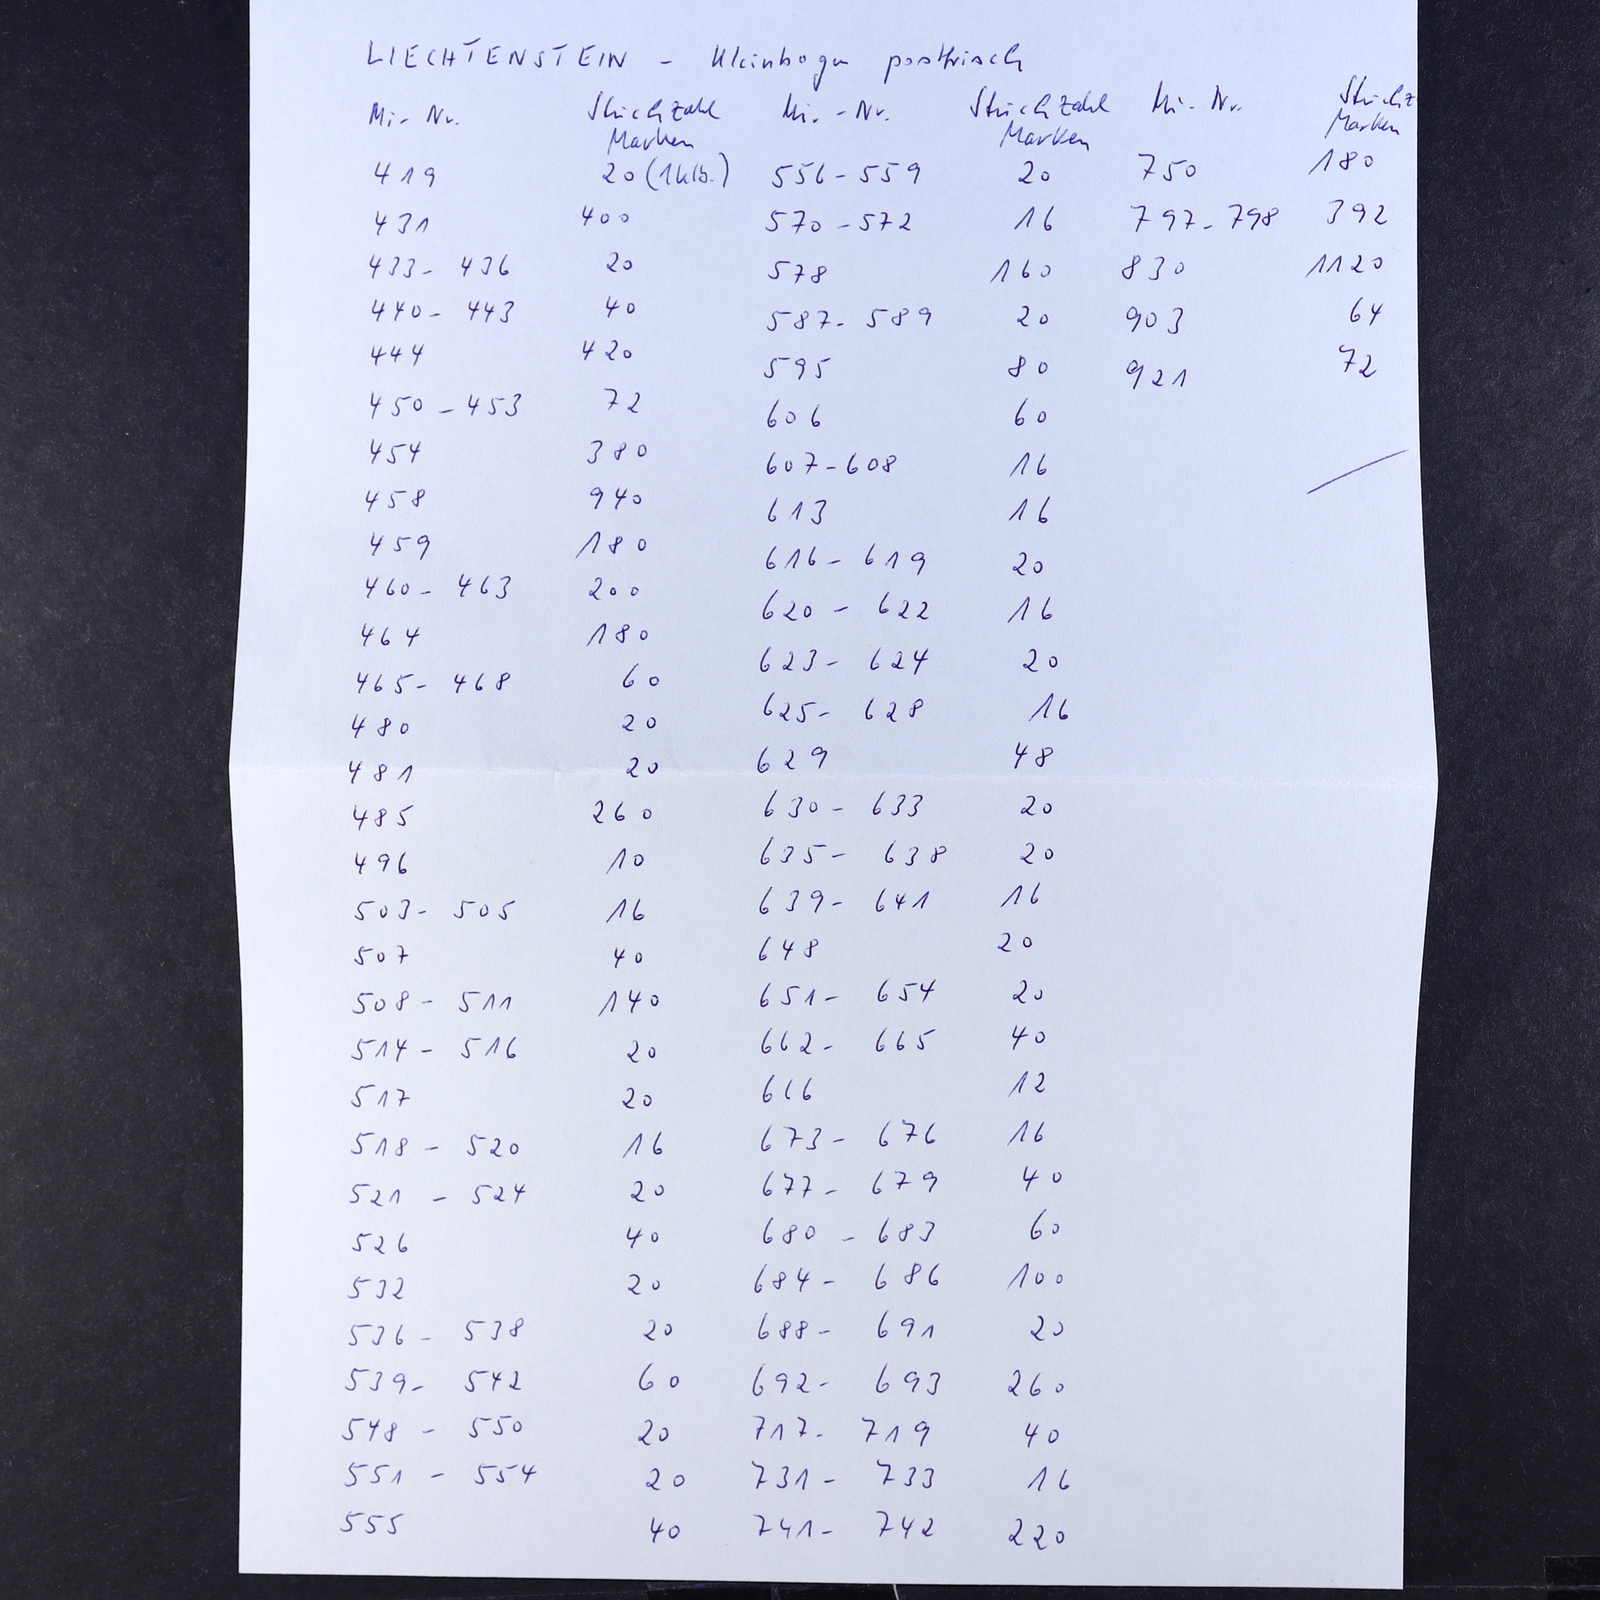 LIECHTENSTEIN - Kleinbogen postfrisch
Mi.- Nr. Stückzahl Marken Mi.-Nr. Stückzahl Marken Mi.- Nr. Stückz Marken
419 20 (1 Klb.) 556-559 20 750 180
431 400 570-572 16 797-798 392
433-436 20 578 160 830 1120
440-443 40 587-589 20 903 64
444 420 595 80 921 72
450-453 72 606 60
454 380 607-608 16
458 940 613 16
459 180 616-619 20
460-463 200 620-622 16
464 180 623-624 20
465-468 60 625-628 16
480 20 629 48
481 20 630-633 20
485 260 635-638 20
496 10 639-641 16
503-505 16 648 20
507 40 651-654 20
508-511 140 662-665 40
514-516 20 666 12
517 20 673-676 16
518-520 16 677-679 40
521-524 20 680-683 60
526 40 684-686 100
532 20 688-691 20
536-538 20 692-693 260
539-542 60 717-719 40
548-550 20 731-733 16
551-554 20 741-742 220
555 40